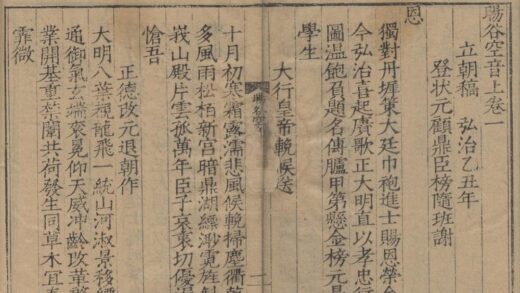 暘谷空音上卷一
立朝稿 弘治乙丑年
登狀元顧鼎臣榜隨班謝
恩
獨對丹墀策大廷巾袍進士賜恩榮
今弘治喜起賡歌正大明直以孝忠
圖温飽負題名傳臚甲第懸金榜元
學生
大行皇帝輓候送
十月初寒霜露濡悲風候輓掃塵衢
多風雨松柏新宮暗鼎湖縹渺霓旌
峩山殿片雲孤萬年臣子哀衷切優
愴吾
正德改元退朝作
大明八葉覩龍飛一統山河淑景移
通御氣玄端衮冕仰天威冲齡改革
業開基重禁闈共荷發生同草木宜
霏微